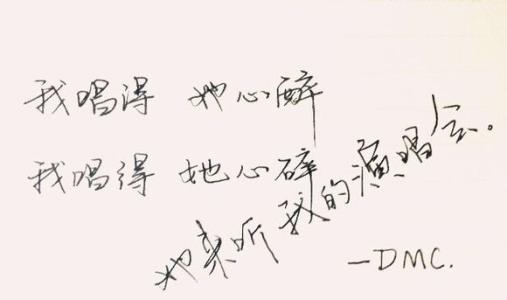 我唱得 她心醉
我唱得 她心碎
她来听我的演唱会。
-DMC.